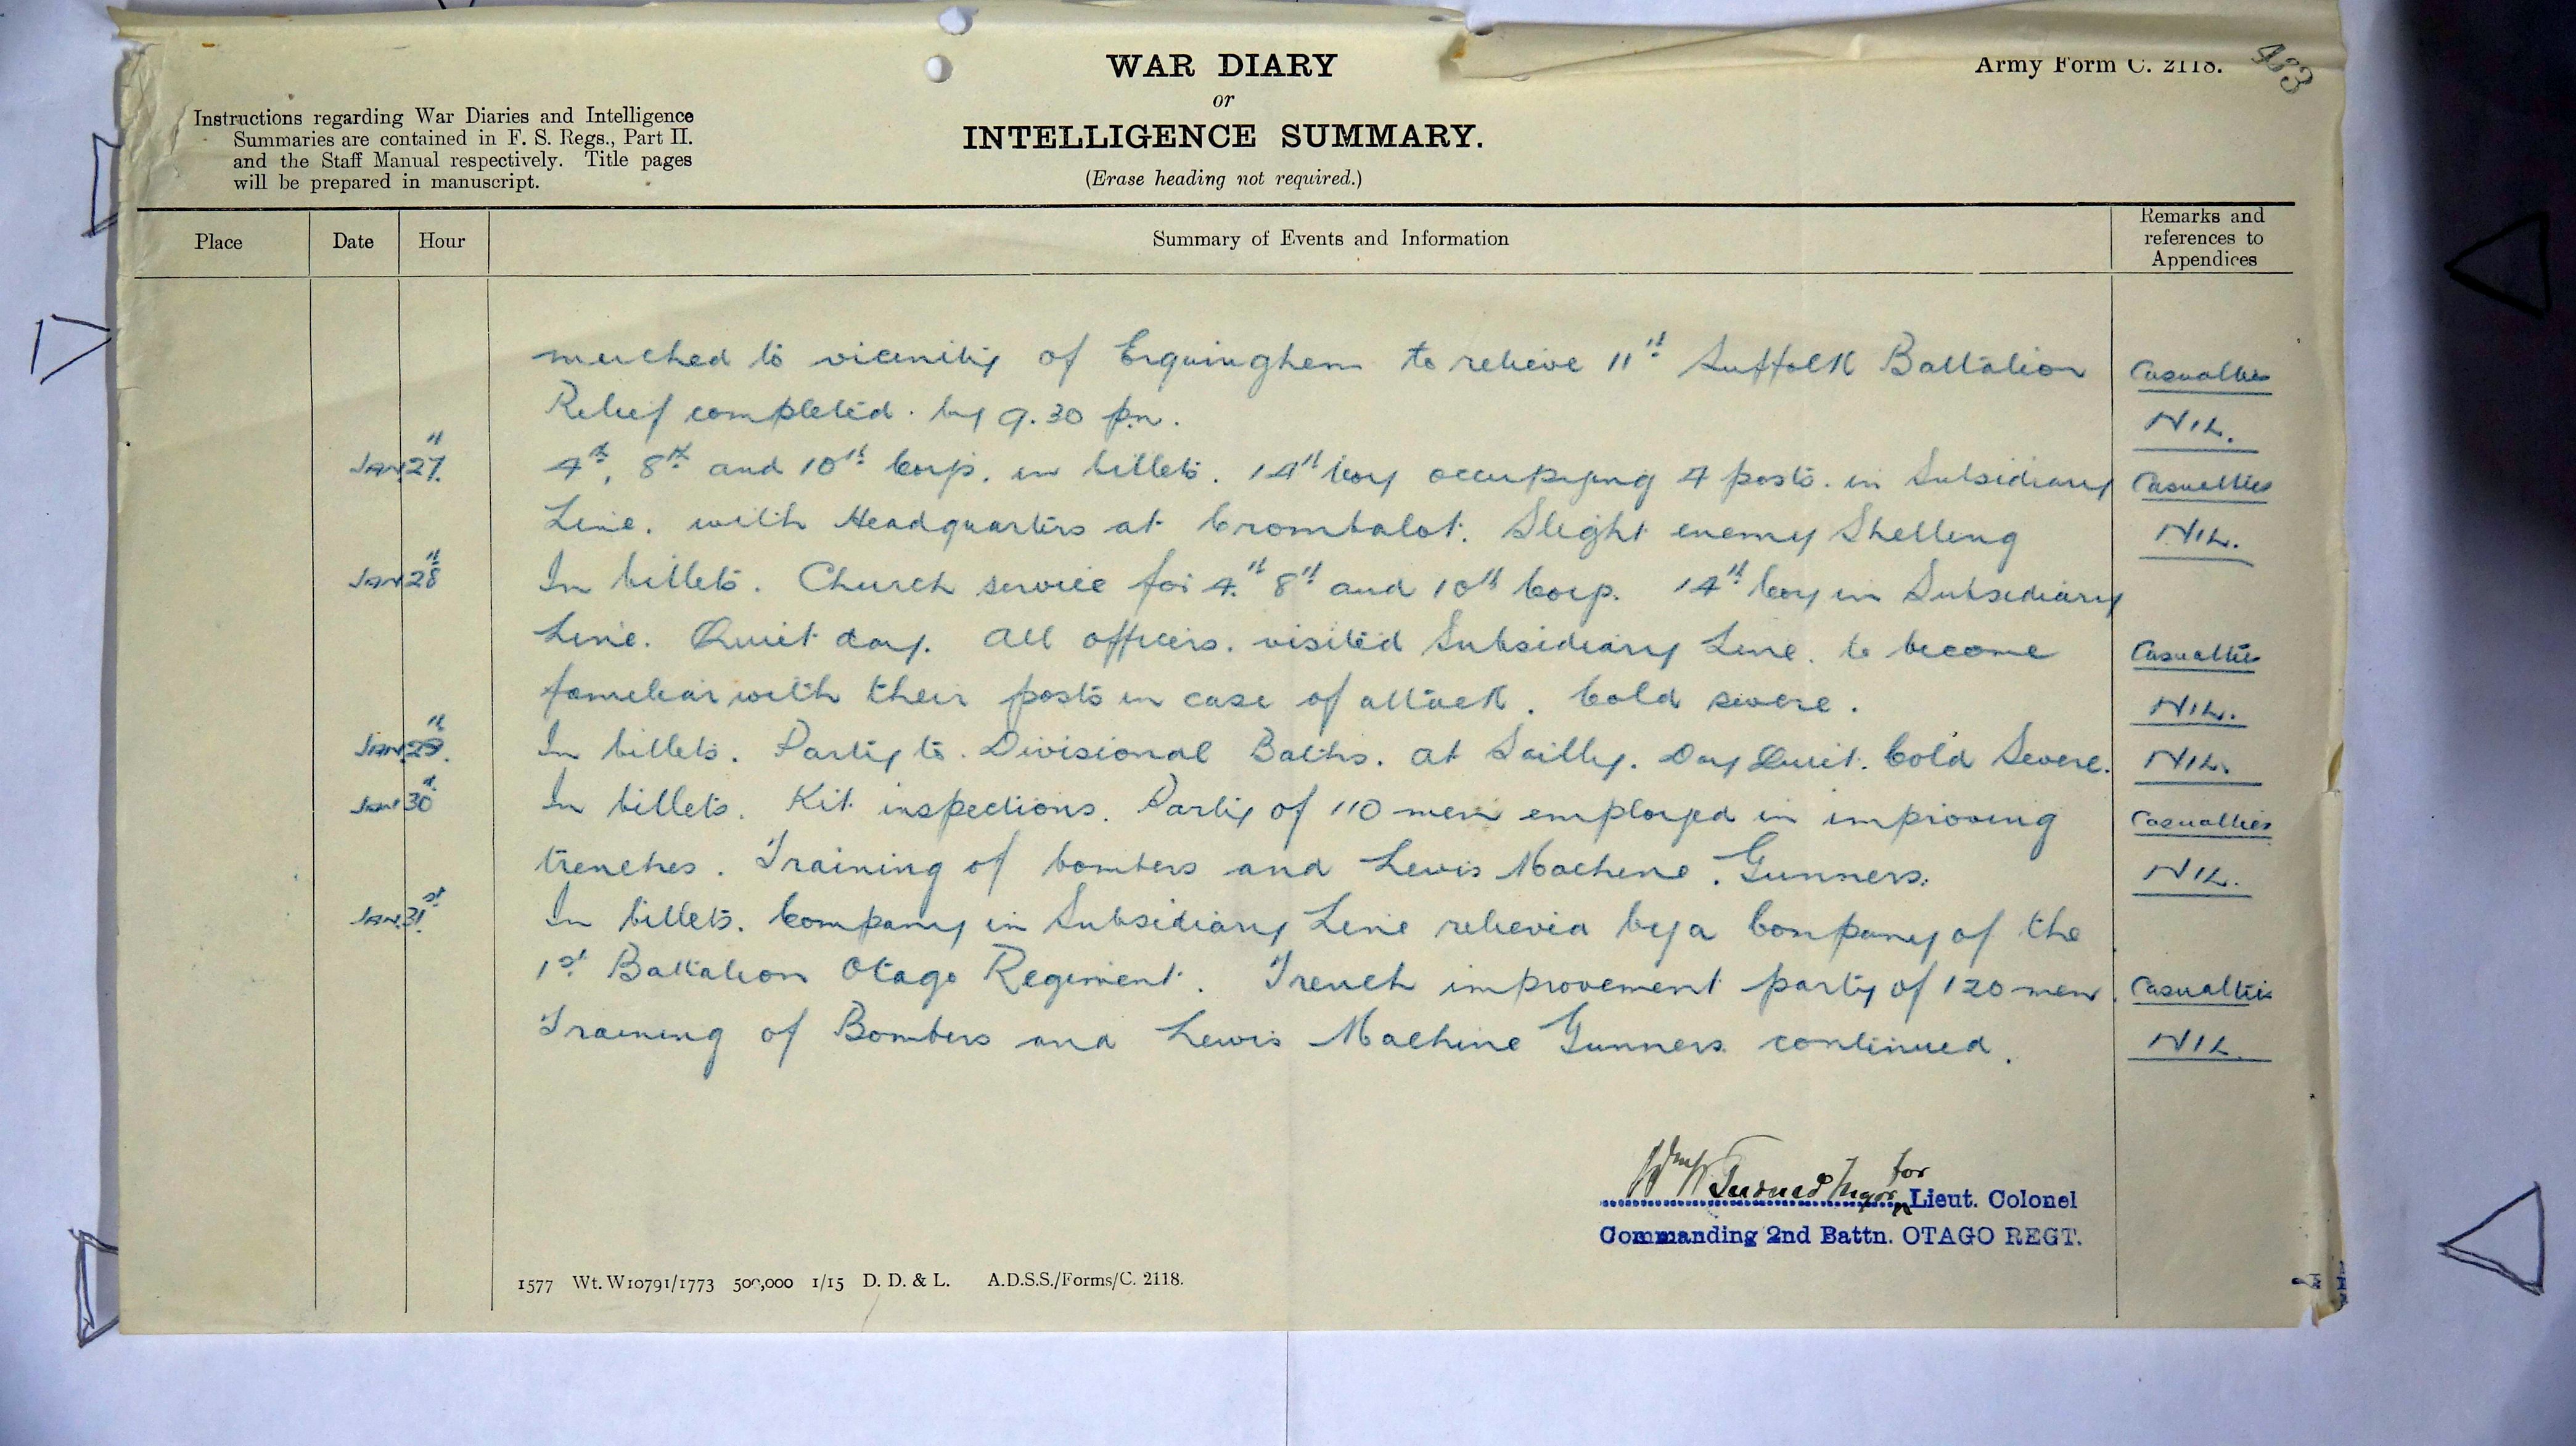 WAR DIARY
or
INTELLIGENCE SUMMARY.
(Erase heading not required.)
Army Form C. 2118.
483
Instructions regarding War Diaries and Intelligence
Summaries are contained in F. S. Regs., Part II.
and the Staff Manual respectively. Title pages
will be prepared in manuscript.
Place Date Hour Summary of Events and Information Remarks and references to Appendices
marched to vicinity of Erquinghem to relieve 11th Suffolk Battalion Casualties
Relief completed by 9.30 pm. NIL.
JAN 27th 4th, 8th and 10th Coys. in billets. 14th Coy occupying 4 posts in Subsidiary Casualties
Line. with Headquarters at Crombalot. Slight enemy Shelling NIL.
JAN 28th In billets. Church service for 4th 8th and 10th Coys. 14th Coy in Subsidiary
Line. Quiet day. All officers. visited Subsidiary Line. to become Casualties
familiar with their posts in case of attack. Cold severe. NIL.
JAN 29th In billets. Party to Divisional Baths. at Sailly. Day Quiet. Cold Severe. NIL.
JAN 30th In billets. Kit inspections. Party of 110 men employed in improving Casualties
trenches. Training of bombers and Lewis Machine. Gunners. NIL.
JAN. 31st In billets. Company in Subsidiary Line relieved by a Company of the
1st Battalion Otago Regiment. Trench improvement party of 120 men. Casualties
Training of Bombers and Lewis Machine Gunners continued. NIL.
Wm W Turner Major for Lieut. Colonel
Commanding 2nd Battn. OTAGO REGT.
1577 Wt. W10791/1773 500,000 1/15 D. D. & L. A.D.S.S./Forms/C. 2118.